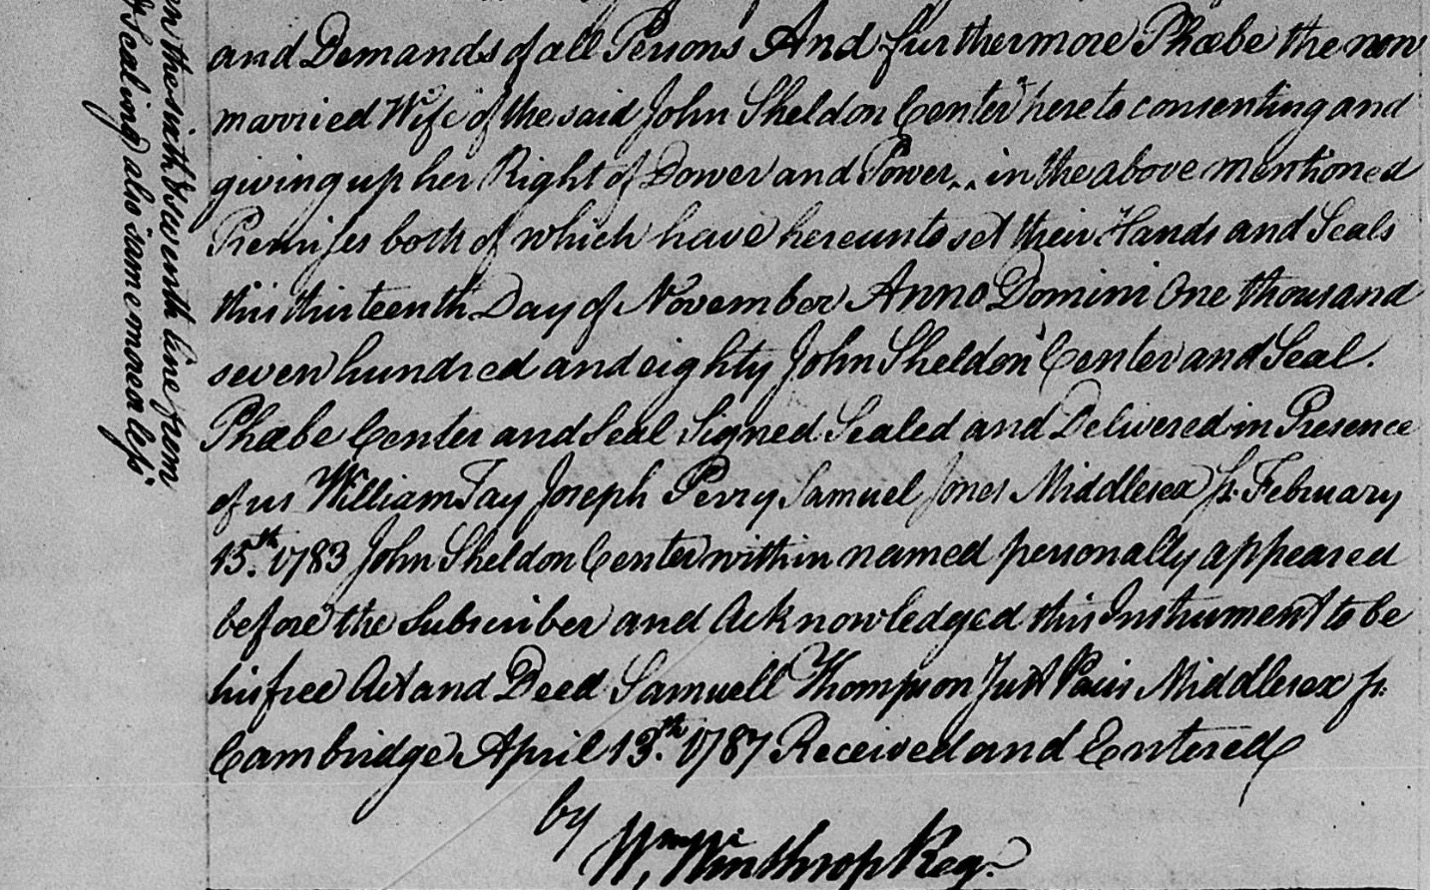 and Demands of all Persons And furthermore Phœbe the now
married Wife of the said John Sheldon Center hereto consenting and
giving up her Right of Dower and Power in the above mentioned
Premises both of which have hereunto set their Hands and Seals
this thirteenth Day of November Anno Domini One thousand
seven hundred and eighty John Sheldon Center and Seal.
Phœbe Center and Seal Signed Sealed and Delivered in Presence
of us William Tay Joseph Perry Samuel Jones Middlesex ss. February
15.th 1783 John Sheldon Center within named personally appeared
before the Subscriber and Acknowledged this Instrument to be
his free Act and Deed Samuell Thompson Just Pacis Middlesex ss.
Cambridge April 13.th 1787 Received and Entered
by
Wm. Winthrop Reg.
on the sixth & seventh line from
Sealing also same more or less